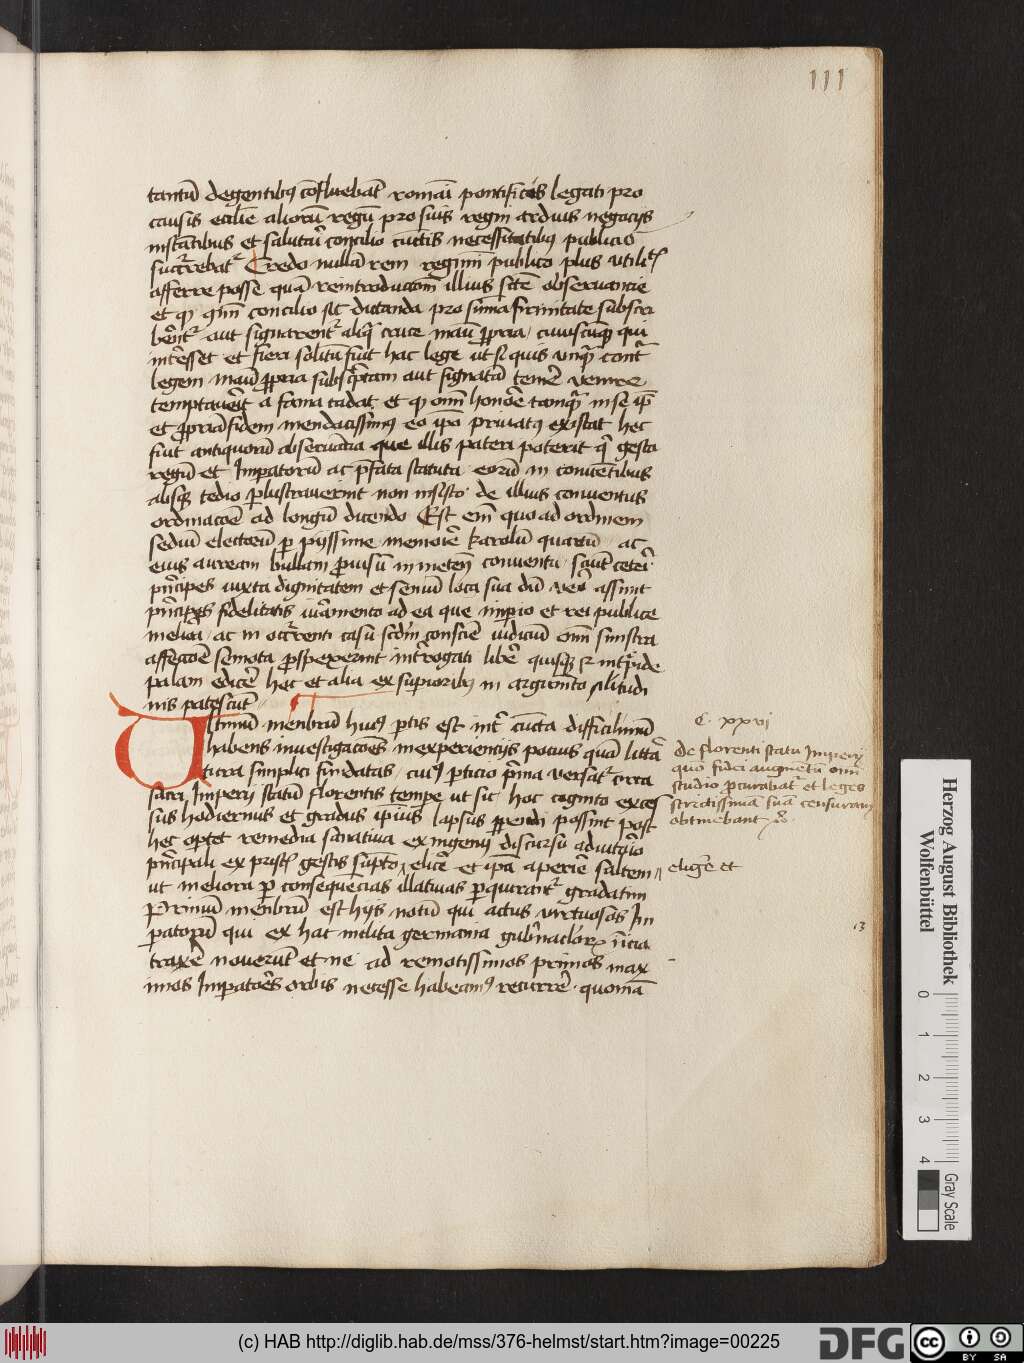 111
tantū degentibus cōfluebāt romani pontificis legati pro
causis ecclīe aliorū regū pro suis regni arduis negocijs
instātibus et salutari concilio cūctis necessitatibus publicis
succurrebat Credo nullā rem regimini publico plus utilitatis
afferre posse quā reintroductionē illius sctē observancie
et q omī in concilio sic dictanda pro sūma firmitate subscri
berent aut signarent aliqua cruce manu propria cuiuscūque qui
interesset et fieri solitū fuit hac lege ut si quis unquam contra
legem manu propria subscriptam aut signatā temere venire
temptaverit a fama cadat et q omī honore tamquā in se ipm
et propriā fidem mendacissimus eo ipo privatus existat hec
fuit antiquorū observātia que illis pateri poterit qui gesta
regū et Imperatorū ac prefata statuta eorū in conventibus
absque tedio perlustraverint non insisto de illius conventus
ordinacōe ad longū dicendo Est enī quo ad ordinem
sediū electorū per pijssime memorie karolū quartū ac
eius auream bullam provisū in metensi conventu sicut ceteri
principes iuxta dignitatem et seniū loca sua dū vero assint
principes fidelitatis iuramento ad ea que imperio et rei publice
meliora ac in occurrenti casu scdm conscie iudiciū omī sinistra
affectiōe semota perspexerint interrogati libere quisque
palam edicere hec et alia ex superioribus in argumento similitudi
nis patescunt
Ultimū menbrū huius partis est inter cuncta difficilimū
habens investigacōes in experiencijs pocius quā littera
tura simplici fundatas cuius porticio prima versatur circa
sacri Imperij statū florentis tempore ut sic hoc cognito exces
sus hodiernus et gradus ipsius lapsus perpendi possint post
hec optet remedia sanativa ex ingenij discursu adiutorio
principali ex priscorum gestis sumpto elicere et ipa aperire saltem
ut meliora per consequencias illativas perquirantur gradatim
Primū menbrū est hijs notū qui actus virtuosos Im
peratorū qui ex hac inclita germania gubernaculorum inicia
traxere noverūt et ne ad remotissimos primos max
imos Imperatores orbis necesse habeamus recurrere quoniā
C. xxvi
de florenti statu Imperij
quo fidei augmētū omī
studio procurabat et leges
strictissimā suā censuram
obtinebant
eligere et
13
Herzog August Bibliothek
Wolfenbüttel
0 1 2 3 4
Gray Scale
(c) HAB http://diglib.hab.de/mss/376-helmst/start.htm?image=00225
DFG
cc BY SA